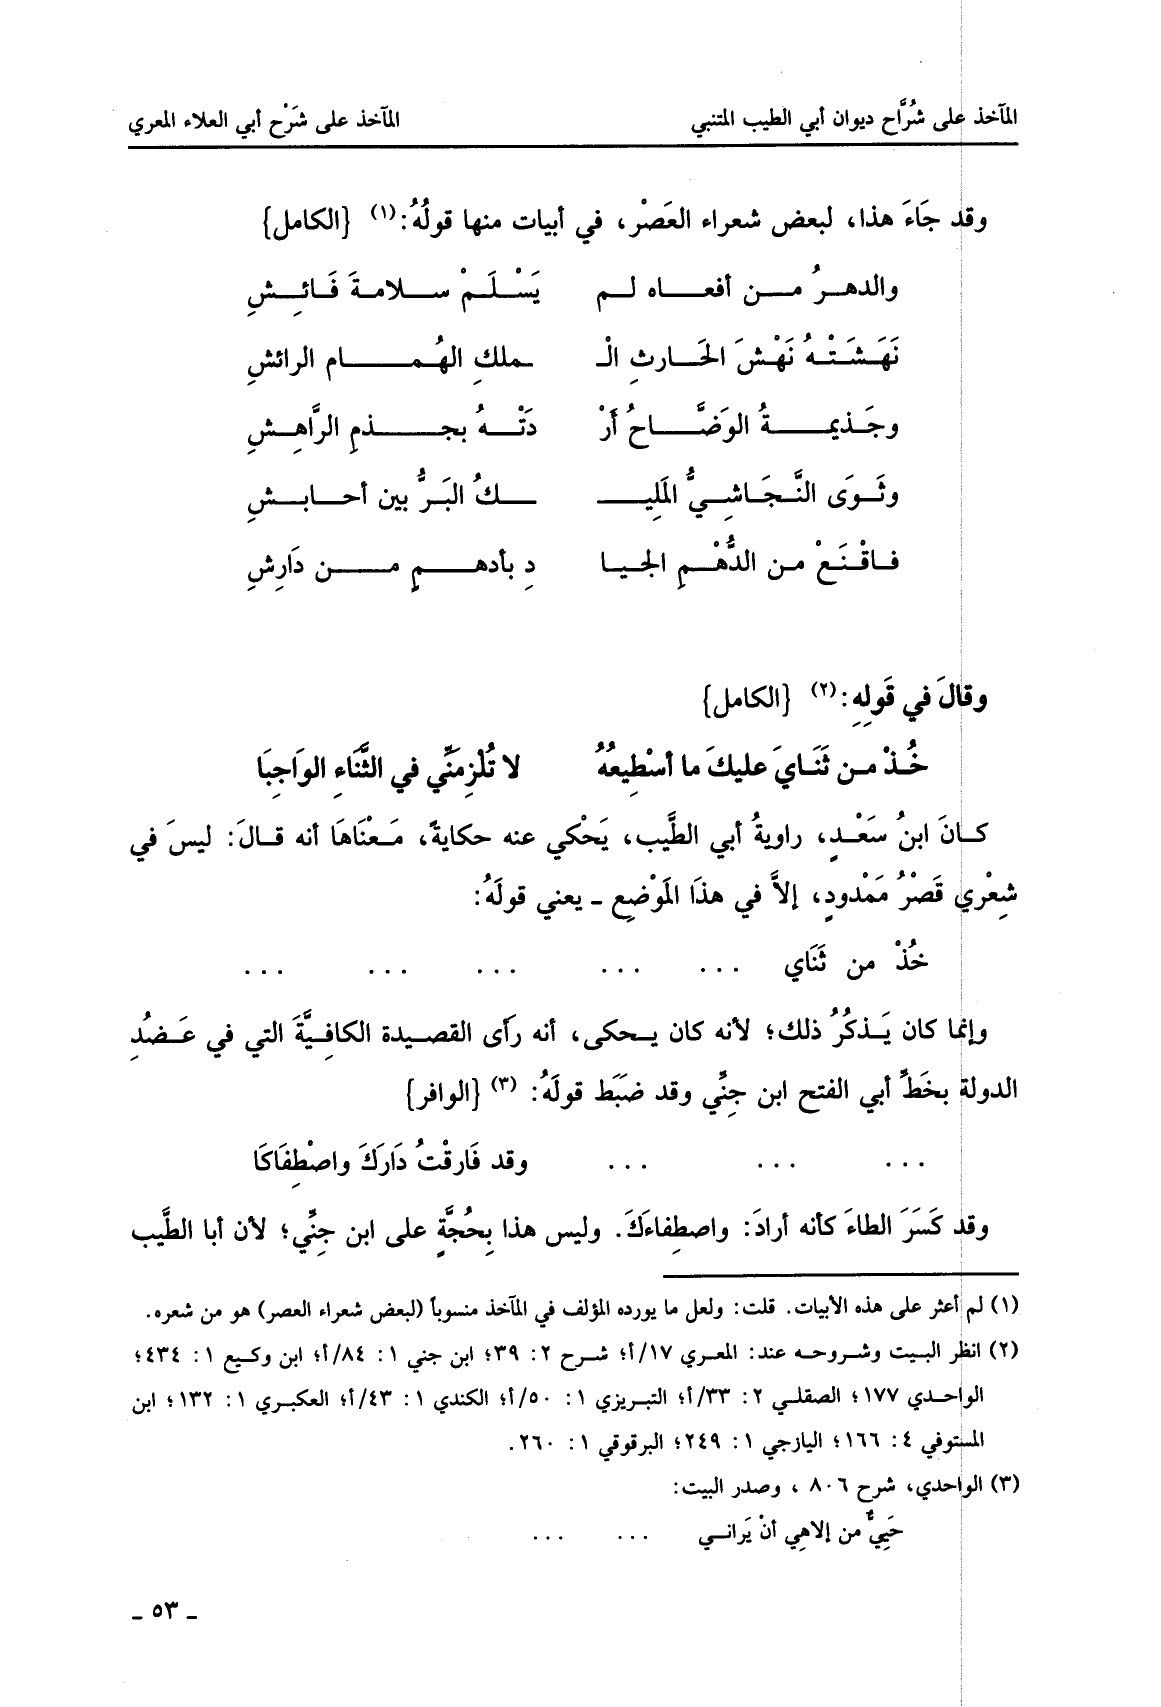 المآخذ على شُرَّاح ديوان أبي الطيب المتنبي المآخذ على شَرْح أبي العلاء المعري
وقد جَاءَ هذا، لبعض شعراء العَصْر، في أبيات منها قولُهُ:(١) {الكامل}
والدهـرُ مـن أفعـاه لـم يَسْلَمْ سـلامـةَ فَائِـشِ
نَهَشَتْهُ نَهْشَ الحَارثِ الْـ ـملكِ الهُمـام الرائشِ
وجَذيمـةُ الوَضَّـاحُ أَرْ دَتْـهُ بجـذمِ الرَّاهِشِ
وثَوَى النَّجَاشِيُّ المَلِيـ ـكُ البَرُّ بين أحـابـشِ
فـاقْنَعْ مـن الدُّهْـمِ الجيـا دِ بأدهـمٍ مـن دَارِشِ
وقالَ في قَولِهِ:(٢) {الكامل}
خُـذْ مـن ثَنَـايَ عليكَ ما أسْطِيعُهُ لا تُلْزِمَنِّي في الثَّنَاءِ الوَاجِبَا
كـانَ ابنُ سَعْـدٍ، راويةُ أبي الطَّيب، يَحْكي عنه حكايةً، مَـعْنَاهَا أنه قـالَ: ليسَ في
شِعْرِي قَصْرُ مَمْدودٍ، إلاَّ في هذَا المَوْضِع ـ يعني قولَهُ:
خُذْ من ثَنَاي ... ... ... ... ...
وإنما كان يَـذكُرُ ذلك؛ لأنه كان يـحكى، أنه رَأى القصـيدة الكافِيَّةَ التي في عَـضُدِ
الدولة بخَطِّ أبي الفتح ابن جِنِّي وقد ضبَط قولَهُ: (٣) {الوافر}
... ... ... وقد فَارقْتُ دَارَكَ واصْطِفَاكَا
وقد كَسَرَ الطاءَ كأنه أرادَ: واصطِفاءَكَ. وليس هذا بِحُجَّةٍ على ابن جِنِّي؛ لأن أبا الطَّيب
(١) لم أعثر على هذه الأبيات. قلت: ولعل ما يورده المؤلف في المآخذ منسوباً (لبعض شعراء العصر) هو من شعره.
(٢) انظر البـيت وشـروحـه عند: المعـري ١٧/أ؛ شـرح ٢: ٣٩؛ ابن جني ١: ٨٤/أ؛ ابن وكـيع ١: ٤٣٤؛
الواحـدي ١٧٧؛ الصقلـي ٢: ٣٣/أ؛ التبـريزي ١: ٥٠/أ؛ الكندي ١: ٤٣/أ؛ العكبـري ١: ١٣٢؛ ابن
المستوفي ٤: ١٦٦؛ اليازجي ١: ٢٤٩؛ البرقوقي ١: ٢٦٠.
(٣) الواحدي، شرح ٨٠٦ ، وصدر البيت:
حَيِيٌّ من إلاهِي أنْ يَرانـي ... ...
ـ ٥٣ ـ